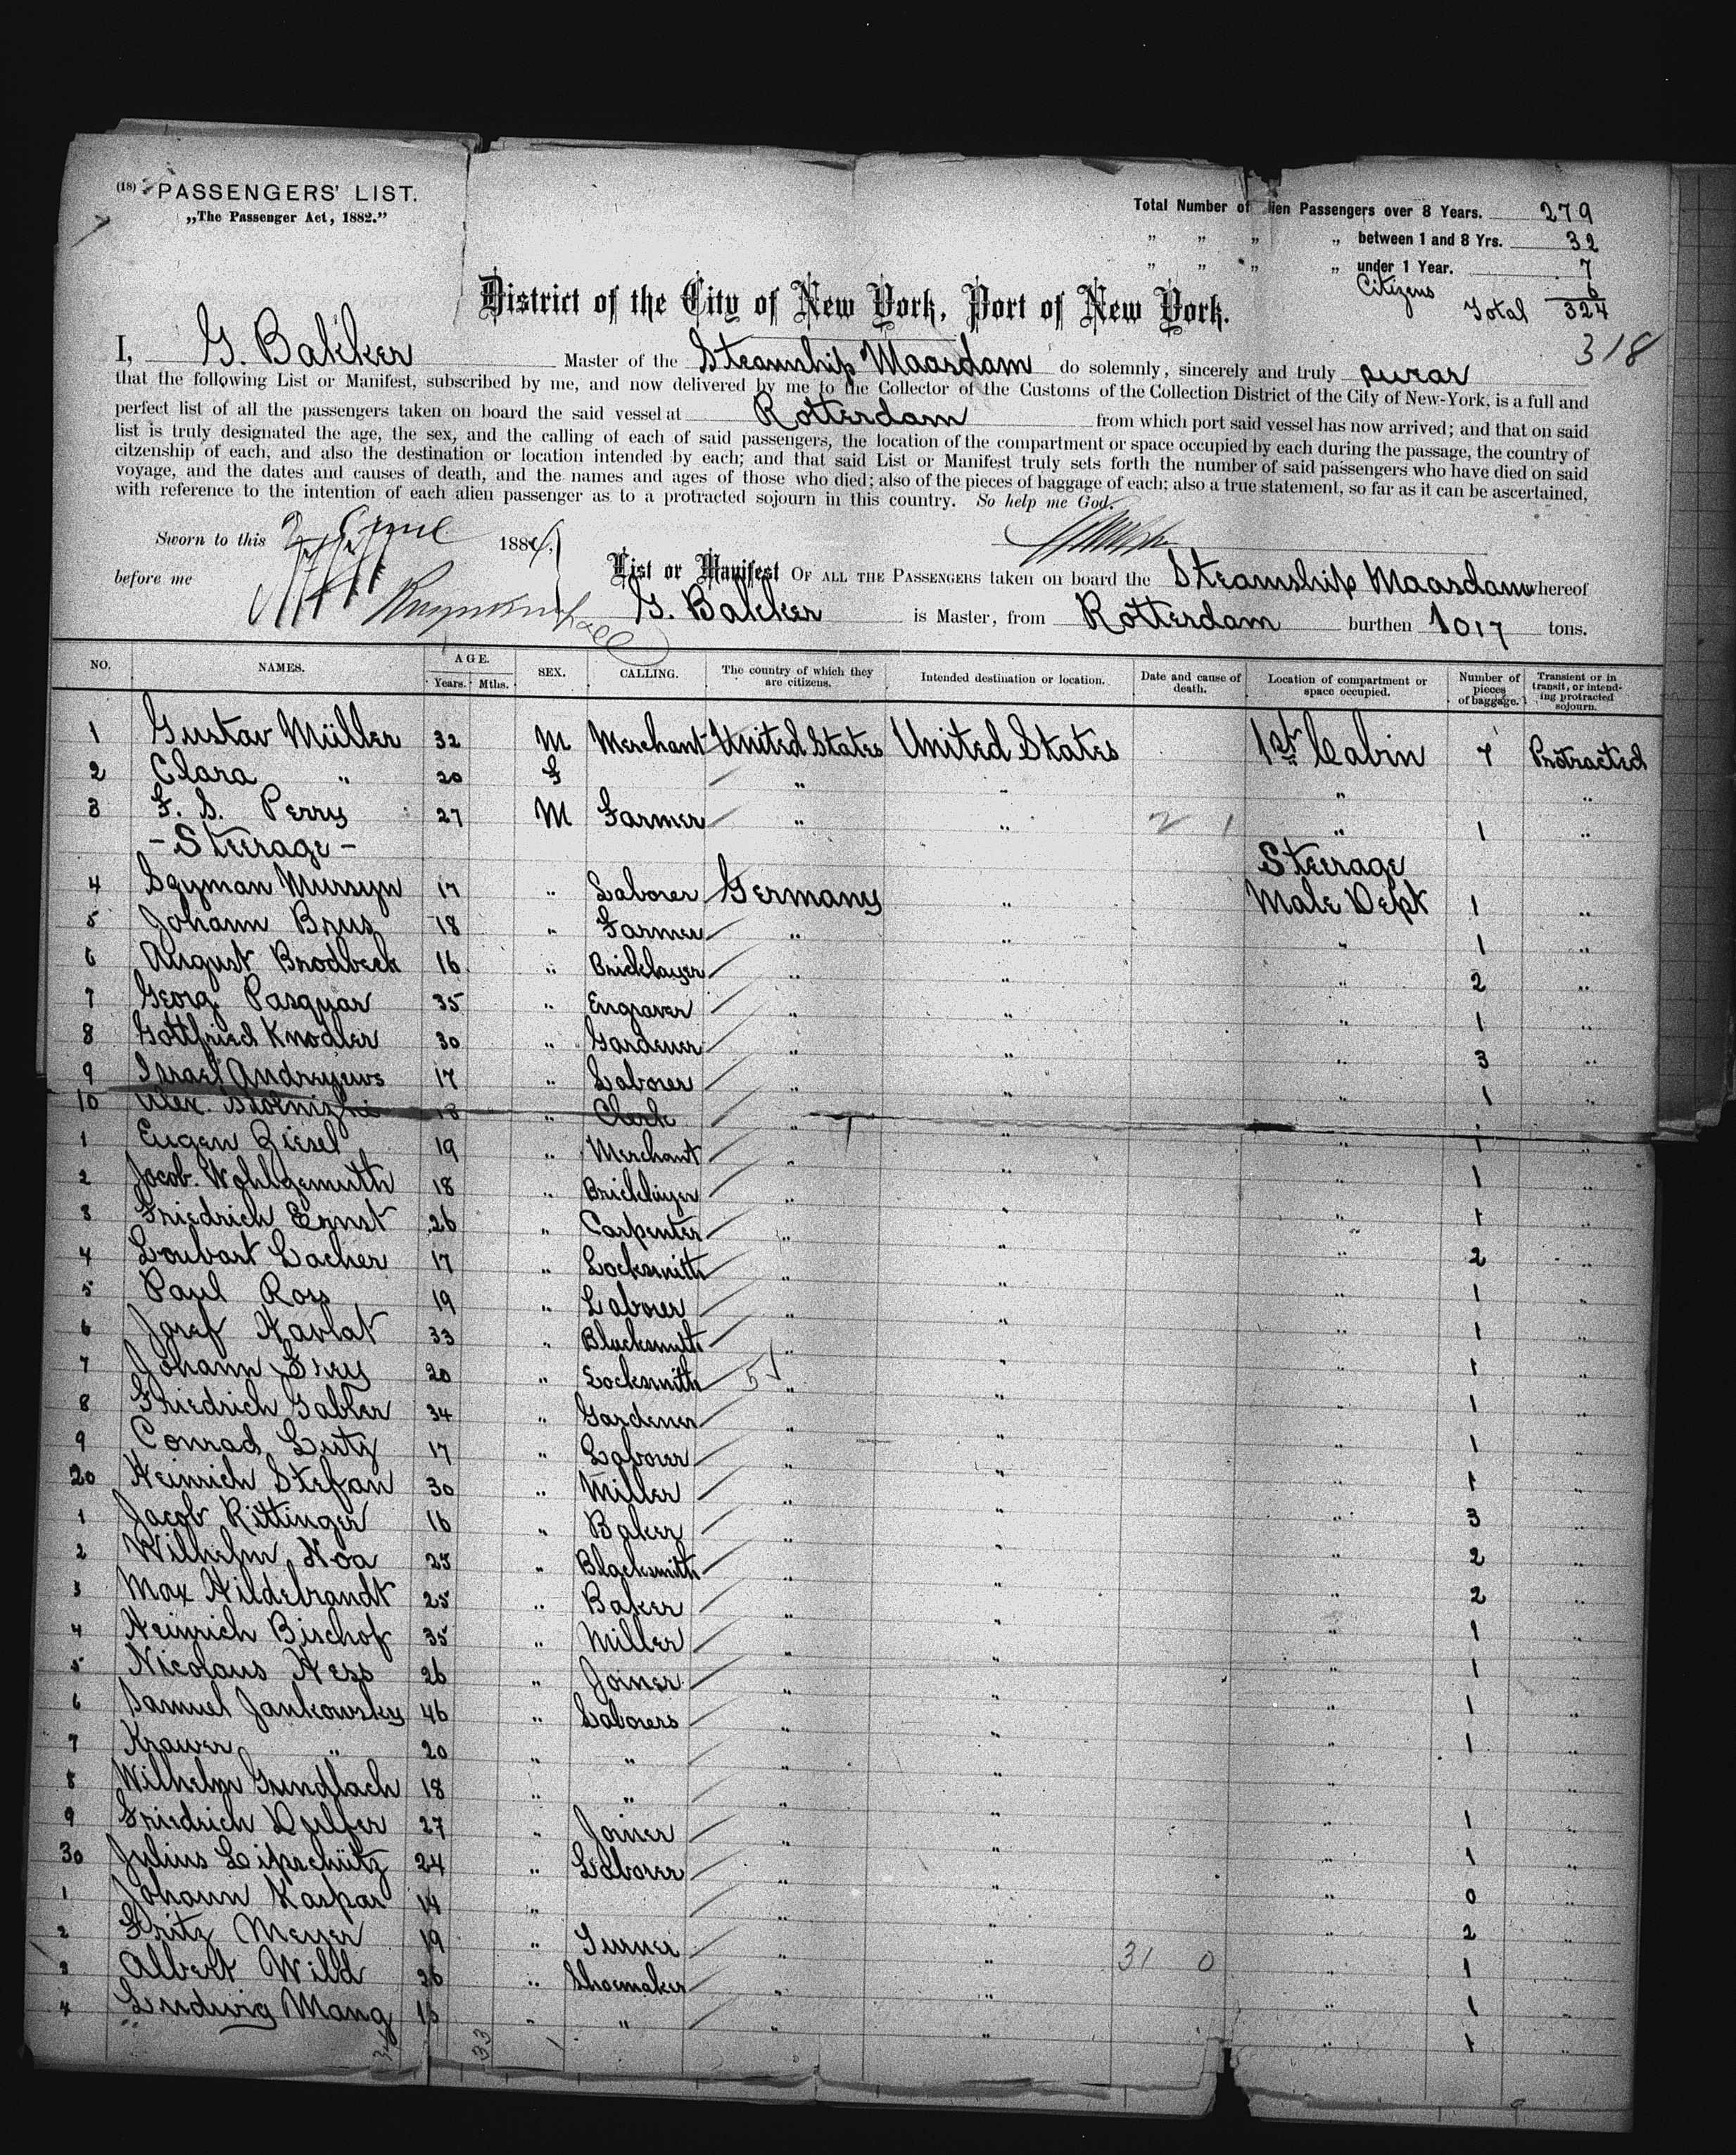 (18) PASSENGERS' LIST.
„The Passenger Act, 1882."
Total Number of lien Passengers over 8 Years. 279
„ „ „ „ between 1 and 8 Yrs. 32
„ „ „ „ under 1 Year. 7
Citizens 6
Total 324
318
District of the City of New York, Port of New York.
I, G. Bakker Master of the Steamship Maasdam do solemnly, sincerely and truly swear
that the following List or Manifest, subscribed by me, and now delivered by me to the Collector of the Customs of the Collection District of the City of New-York, is a full and
perfect list of all the passengers taken on board the said vessel at Rotterdam from which port said vessel has now arrived; and that on said
list is truly designated the age, the sex, and the calling of each of said passengers, the location of the compartment or space occupied by each during the passage, the country of
citzenship of each, and also the destination or location intended by each; and that said List or Manifest truly sets forth the number of said passengers who have died on said
voyage, and the dates and causes of death, and the names and ages of those who died; also of the pieces of baggage of each; also a true statement, so far as it can be ascertained,
with reference to the intention of each alien passenger as to a protracted sojourn in this country. So help me God.
Sworn to this 2 June 1884,
before me
List or Manifest OF ALL THE PASSENGERS taken on board the Steamship Maasdam whereof
G. Bakker is Master, from Rotterdam burthen 1017 tons.
NO. NAMES. AGE. Years. Mths. SEX. CALLING. The country of which they are citizens. Intended destination or location. Date and cause of death. Location of compartment or space occupied. Number of pieces of baggage. Transient or in transit, or intending protracted sojourn.
1 Gustav Müller 32 M Merchant United States United States 1st Cabin 7 Protracted
2 Clara „ 20 F „ „ „ „
3 F. S. Perry 27 M Farmer „ „ 2 1 „ 1 „
- Steerage - Steerage
4 Sgyman Mursyn 17 „ Laborer Germany „ Male Dept 1 „
5 Johann Brus 18 „ Farmer „ „ „ 1 „
6 August Brodbeck 16 „ Bricklayer „ „ „ 2 „
7 Georg Pasquar 35 „ Engraver „ „ „ 1 „
8 Gottfried Knodler 30 „ Gardener „ „ „ 3 „
9 Israel Andrejews 17 „ Laborer „ „ „ 1 „
10 Alex. 18 „ Clerk „ „ „ 1 „
1 Eugen Ziesel 19 „ Merchant „ „ „ 1 „
2 Jacob Wohlgemuth 18 „ Bricklayer „ „ „ 1 „
3 Friedrich Ernst 26 „ Carpenter „ „ „ 2 „
4 Loubart Lacher 17 „ Locksmith „ „ „ 1 „
5 Paul Ross 19 „ Laborer „ „ „ 1 „
6 Josef Havlat 33 „ Blacksmith „ „ „ 1 „
7 Johann Frey 20 „ Locksmith 51 „ „ „ 1 „
8 Friedrich Gabler 34 „ Gardener „ „ „ 1 „
9 Conrad Lutz 17 „ Laborer „ „ „ 1 „
20 Heinrich Stefan 30 „ Miller „ „ „ 3 „
1 Jacob Rittinger 16 „ Baker „ „ „ 2 „
2 Wilhelm Hoa 25 „ Blacksmith „ „ „ 2 „
3 Max Hildebrandt 25 „ Baker „ „ „ 1 „
4 Heinrich Bischof 35 „ Miller „ „ „ 1 „
5 Nicolaus Hess 26 „ Joiner „ „ „ 1 „
6 Samuel Jankowsky 46 „ Laborers „ „ „ 1 „
7 Krawer „ 20 „ „ „ „ „ „
8 Wilhelm Gundlach 18 „ „ „ „ „ 1 „
9 Friedrich Dulfer 27 „ Joiner „ „ „ 1 „
30 Julius Lipschütz 24 „ Laborer „ „ „ 0 „
1 Johann Kaspar 14 „ „ „ „ 2 „
2 Fritz Meyer 19 „ Turner „ „ 31 0 „ 1 „
3 Albert Wild 26 „ Shoemaker „ „ „ 1 „
4 Ludwig Mang 15 „ „ „ „ „ 1 „
34 33 1